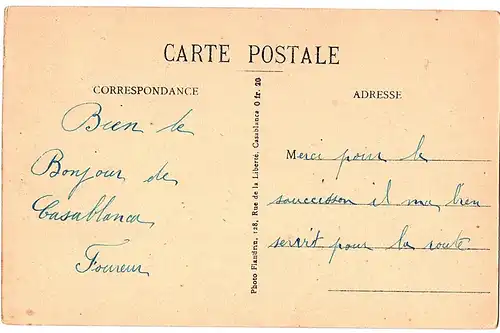 CARTE POSTALE
CORRESPONDANCE
Bien le
Bonjour de
Casablanca
Foureur
Photo Flandrin, 128, Rue de la Liberté, Casablanca 0 fr. 20
ADRESSE
Merci pour le
saucisson il ma bien
servit pour la route